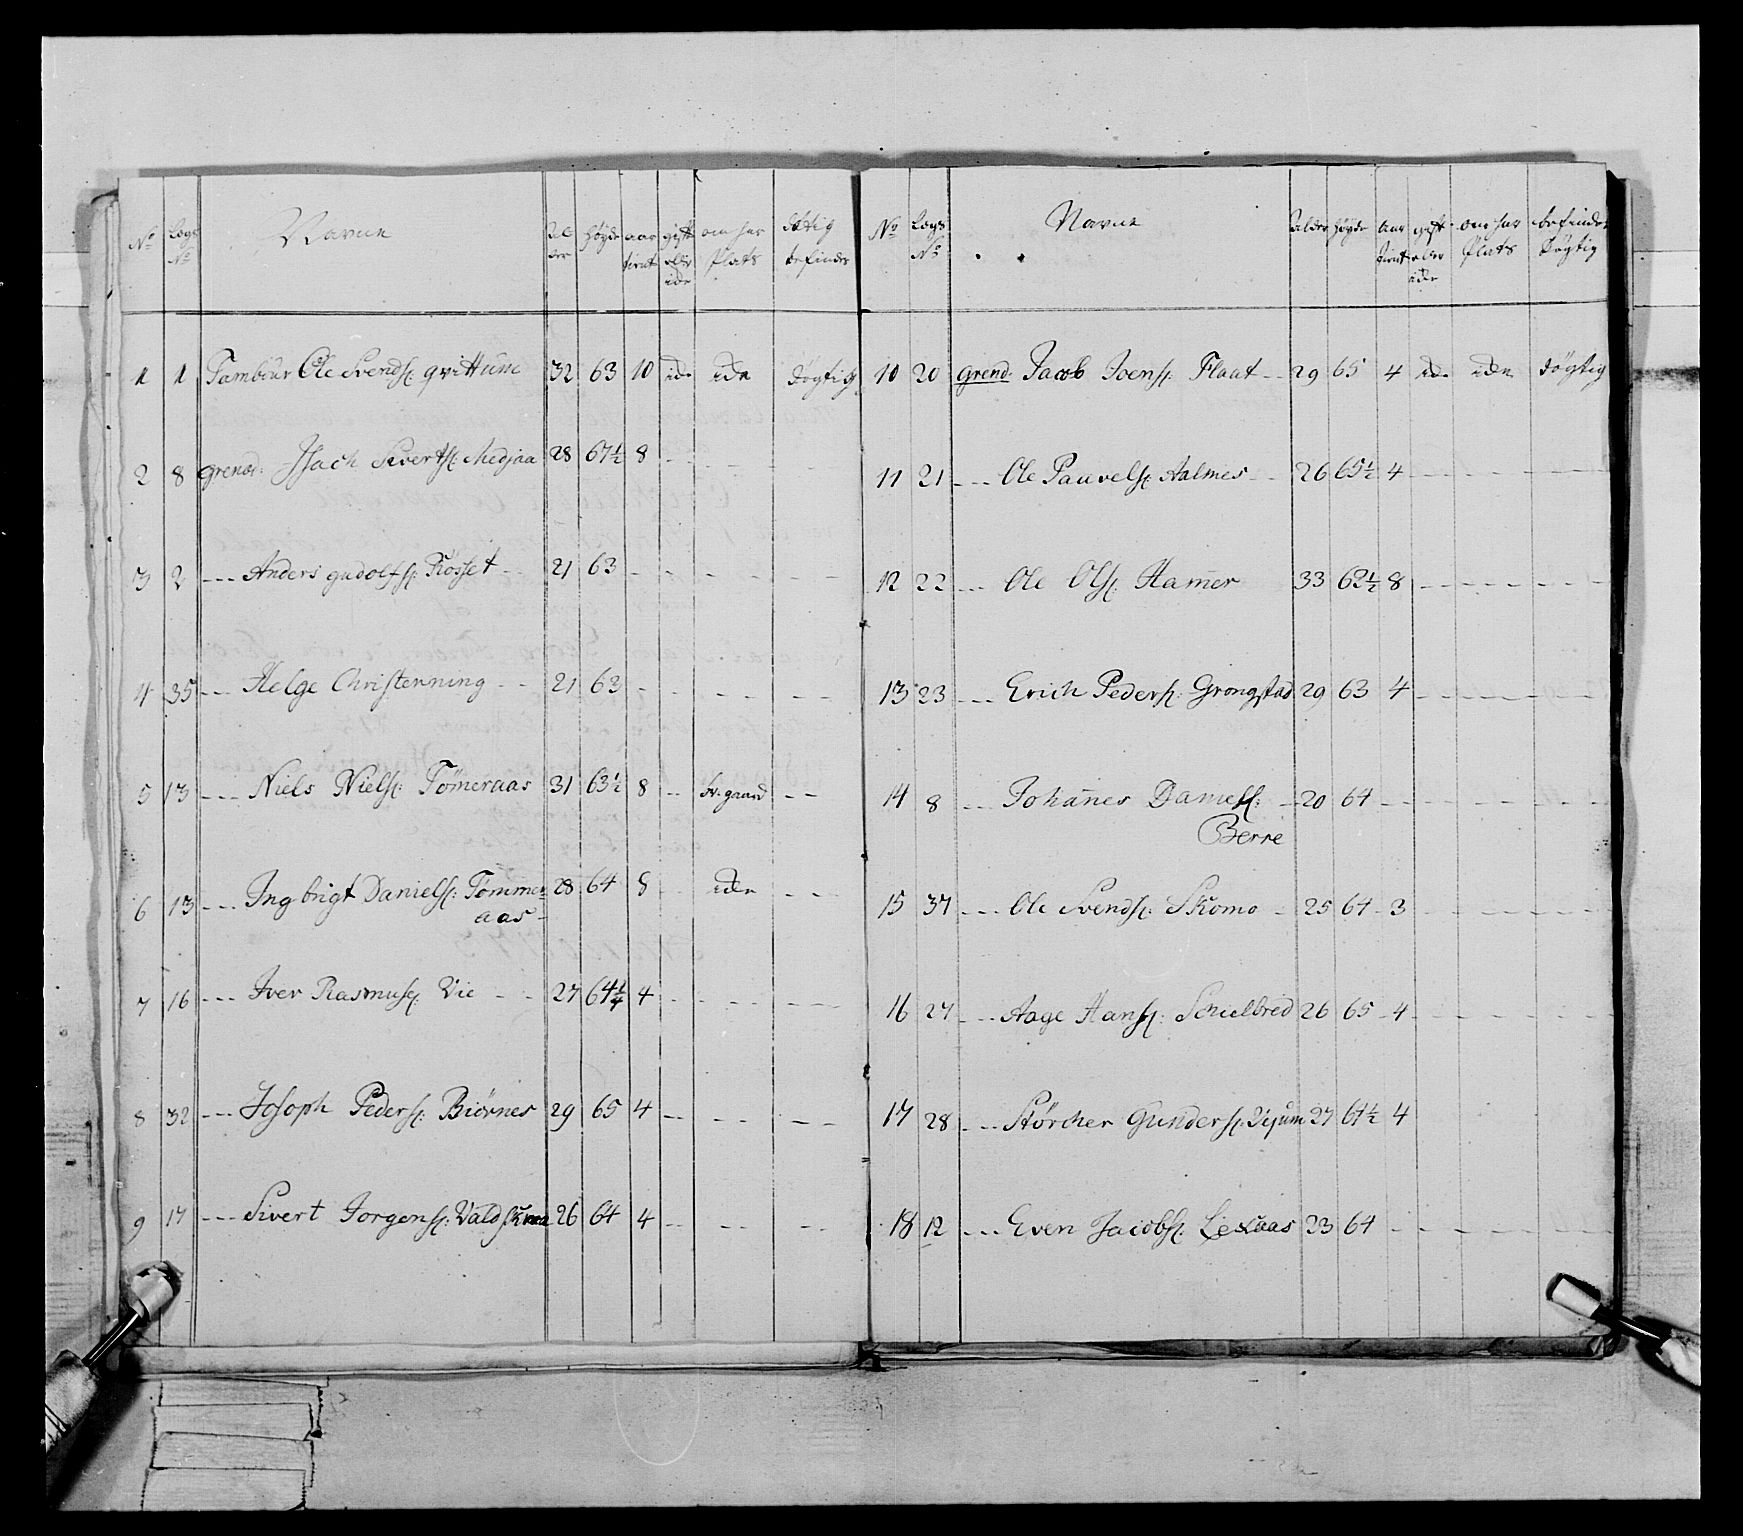 No Lægs No Navne Alder Høyde aar tient gift eller icke om har Plats døgtig befindes
1 1 Tambour Ole Svends: qvittum 32 63 10 icke icke døgtig
2 8 Grend: Isach Sivertss: Medjaa 28 67½ 8 - - -
3 2 --- Anders gudolfss: Rösset -- 21 63 - - - -
4 35 --- Helge Christenning -- 21 63 - - - -
5 13 --- Niels Nielss: Tömeraas 31 63½ 8 -- br: gaard --
6 13 --- Ingbrigt Danielss: Tömmer
aas - 28 64 8 -- icke --
7 16 --- Iver Rasmuss: Vie -- 27 64¼ 4 - - -
8 32 --- Joseph Pederss: Biörnes 29 65 4 -- -- --
9 17 --- Sivert Jorgenss: 26 64 4 -- -- --
No Lægs No Navne Alder Høyde Aar tient gift eller icke om har Plats befindes Døgtig
10 20 Grend: Jacob Joenss: Flaat -- 29 65 4 icke icke døgtig
11 21 --- Ole Pauvelss: Aalmes -- 26 65½ 4 - - -
12 22 --- Ole Olss: Hamer 33 62½ 8 - - -
13 23 --- Erich Pederss: Grongstad 29 63 4 - - -
14 8 --- Johañes Danielss: -- 20 64 - - - -
Berre
15 37 --- Ole Svendss: Skomo - 25 64 3 - - -
16 27 --- Aage Hanss: Schielbred 26 65 4 - - -
17 28 --- Störcher Gunderss: 27 61½ 4
18 12 --- Even Jacobss: Lexaas 23 64 - - - -